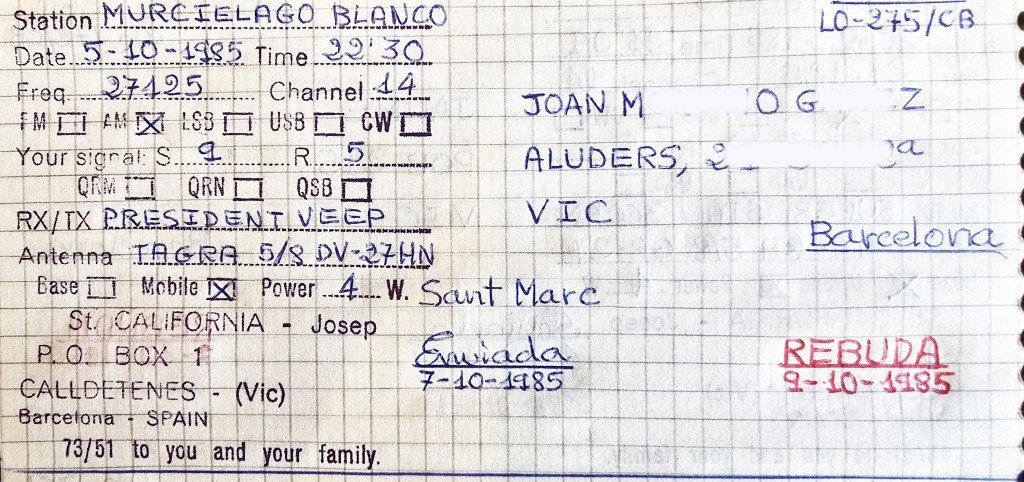 Station MURCIELAGO BLANCO
LO-275/CB
Date 5-10-1985 Time 22'30
Freq. 27125 Channel 14
FM AM LSB USB CW
Your signal: S 9 R 5
QRM QRN QSB
RX/TX PRESIDENT VEEP
Antenna TAGRA 5/8 DV-27HN
Base Mobile Power 4 W. Sant Marc
St. CALIFORNIA - Josep
P.O. BOX 1
CALLDETENES - (Vic)
Barcelona - SPAIN
73/51 to you and your family.
JOAN M O G Z
ALUDERS, 2 a
VIC
Barcelona
Enviada
7-10-1985
REBUDA
9-10-1985